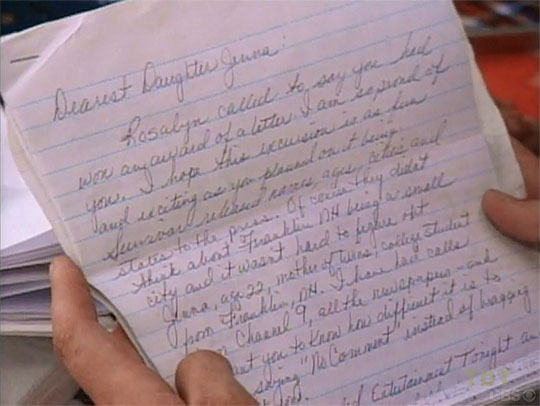 Dearest Daughter Jenna:
Rosalyn called to say you had
won an award of a letter. I am so proud of
you. I hope this excursion is as fun
and exciting as you planned on it being!
Survivor released names, ages, cities and
states to the press. Of course they didn't
think about Franklin, NH being a small
city and it wasn't hard to figure out
Jenna, age 22, mother of twins, college student
from Franklin, NH. I have had calls
Channel 9, all the newspapers - and
want you to know how difficult it is to
saying "No Comment" instead of bragging
you.
Entertainment Tonight an